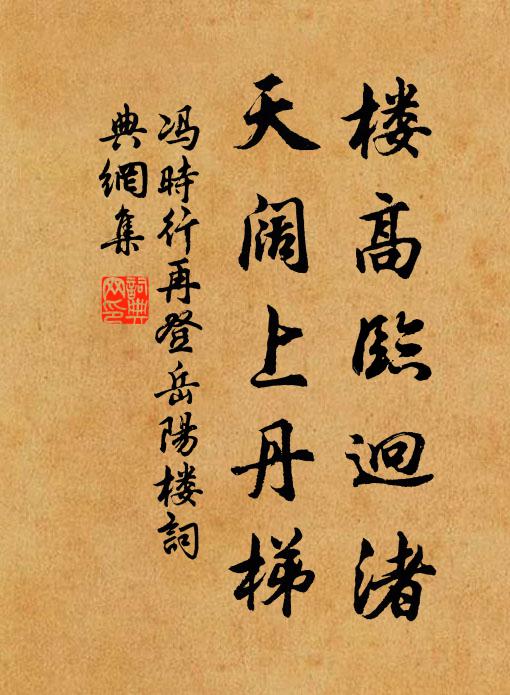 楼高臨迥渚
天阔上丹梯
冯時行再登岳陽楼詞
典網集
詞典
网印